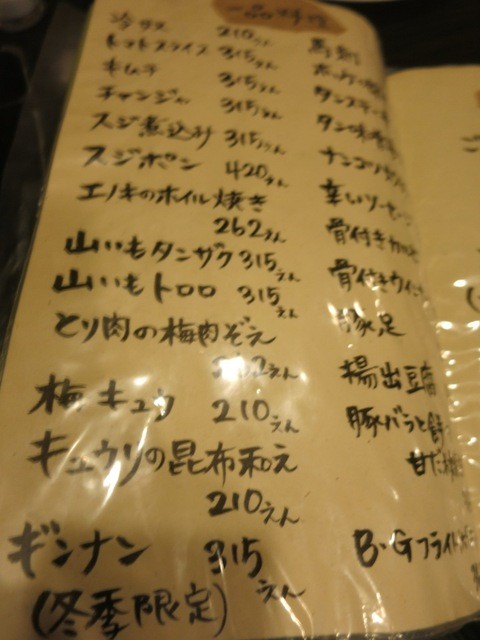 一品料理
冷ヤス 210えん
トマトスライス 315えん
キムチ 315えん
チャンジャ 315えん
スジ煮込み 315えん
スジポン 420えん
エノキのホイル焼き
262えん
山いもタンザク 315えん
山いもトロロ 315えん
とり肉の梅肉ぞえ
262えん
梅キュウ 210えん
キュウリの昆布和え
210えん
ギンナン 315えん
(冬季限定)
馬刺
タンステーキ
タン味噌
ナンコツ
辛いソーセージ
骨付きカルビ
骨付きウインナー
豚足
揚出豆腐
豚バラと
甘だ
B·Gフライド
ご